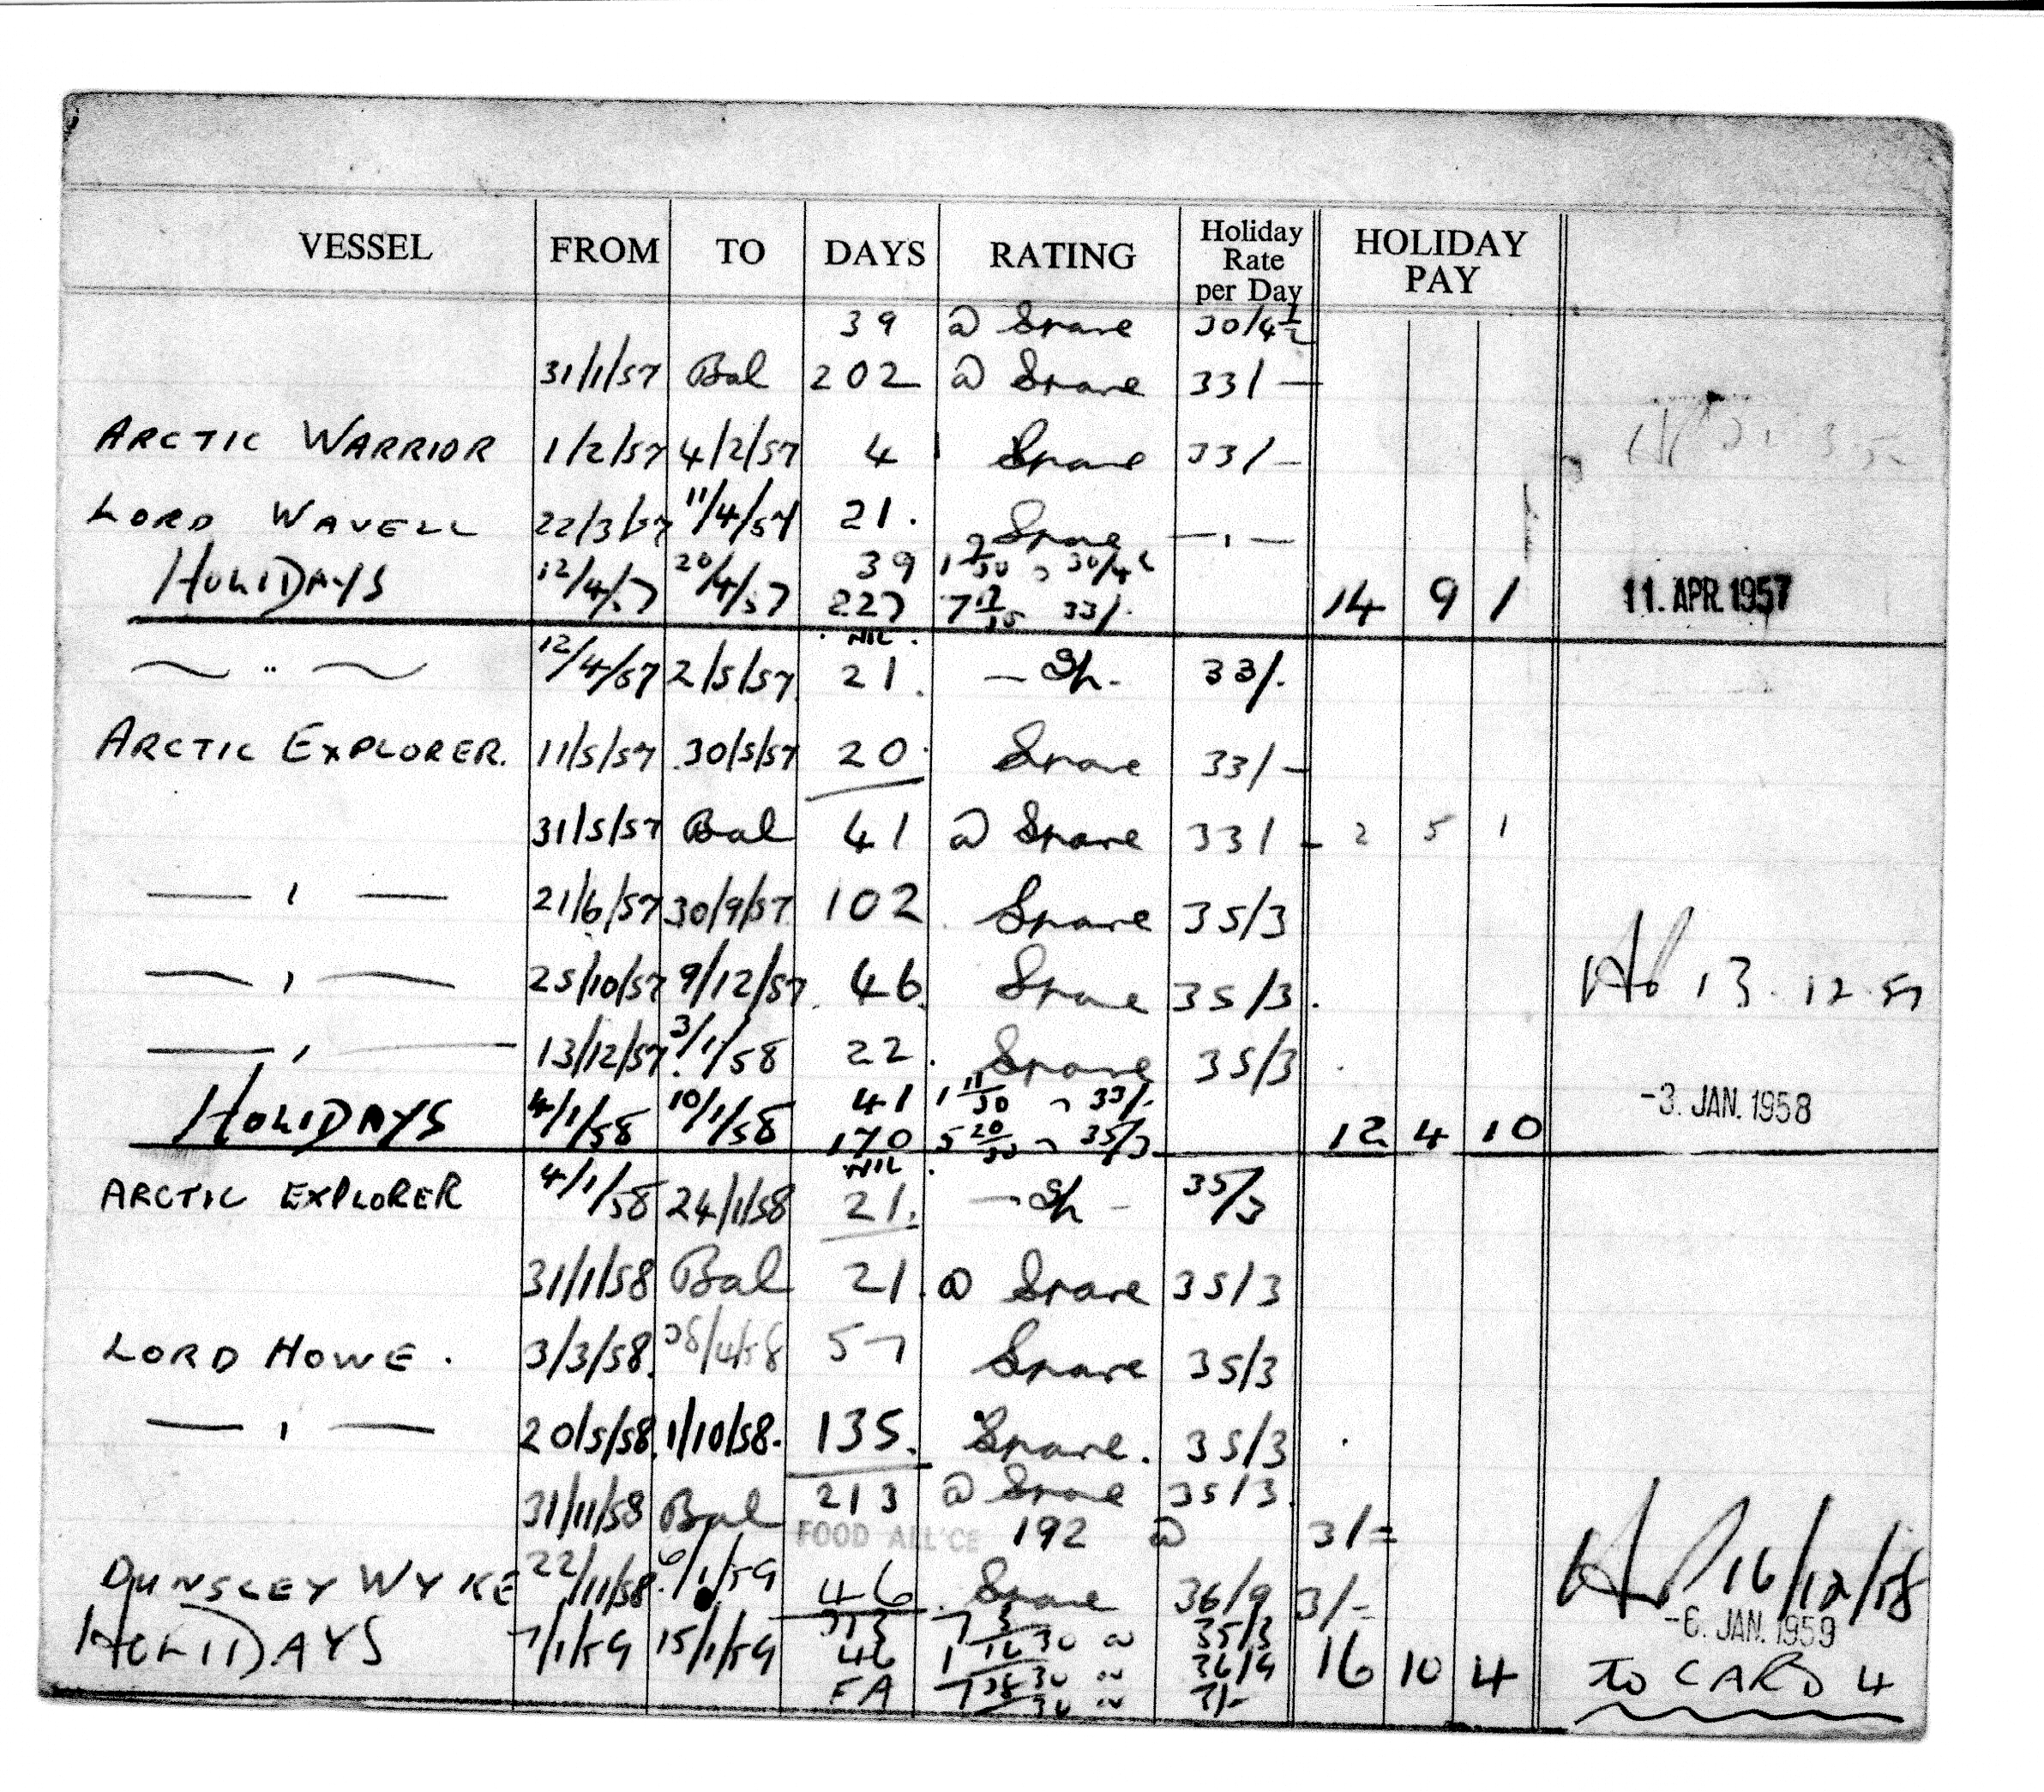 VESSEL FROM TO DAYS RATING Holiday Rate per Day HOLIDAY PAY
39 @ Spare 30/4½
31/1/57 Bal 202 @ Spare 33/-
ARCTIC WARRIOR 1/2/57 4/2/57 4 Spare 33/-
LORD WAVELL 22/3/57 11/4/57 21. Spare —"—
39 1 9/30 @ 30/4½
HOLIDAYS 12/4/57 20/4/57 227 7 17/30 33/- 14 9 1 11. APR. 1957
NIL.
~ " ~ 12/4/57 2/5/57 21. - Sp. 33/-
ARCTIC EXPLORER. 11/5/57 30/5/57 20. Spare 33/-
31/5/57 Bal 41 @ Spare 33/- 2 5 1
— " — 21/6/57 30/9/57 102 Spare 35/3
— " — 25/10/57 9/12/57 46 Spare 35/3. 13.12.57
— " — 13/12/57 3/1/58 22. Spare 35/3
41 1 11/30 @ 33/-
HOLIDAYS 4/1/58 10/1/58 170 5 20/30 @ 35/3 12 4 10 -3. JAN. 1958
NIL.
ARCTIC EXPLORER 4/1/58 24/1/58 21. - Sp - 35/3
31/1/58 Bal 21. @ Spare 35/3
LORD HOWE. 3/3/58. 28/4/58 57 Spare 35/3
— " — 20/5/58. 1/10/58. 135. Spare. 35/3
31/11/58 Bal 213 @ Spare 35/3.
FOOD ALL'CE 192 @ 3/=
DUNSLEY WYKE 22/11/58. 6/1/59 46. Spare 36/9 3/- 16/12/58
213 7 3/30 @ 35/3 -6. JAN. 1959
HOLIDAYS 7/1/59 15/1/59 46 1 16/30 @ 36/9 16 10 4 TO CARD 4
FA 7 28/30 @ 3/-